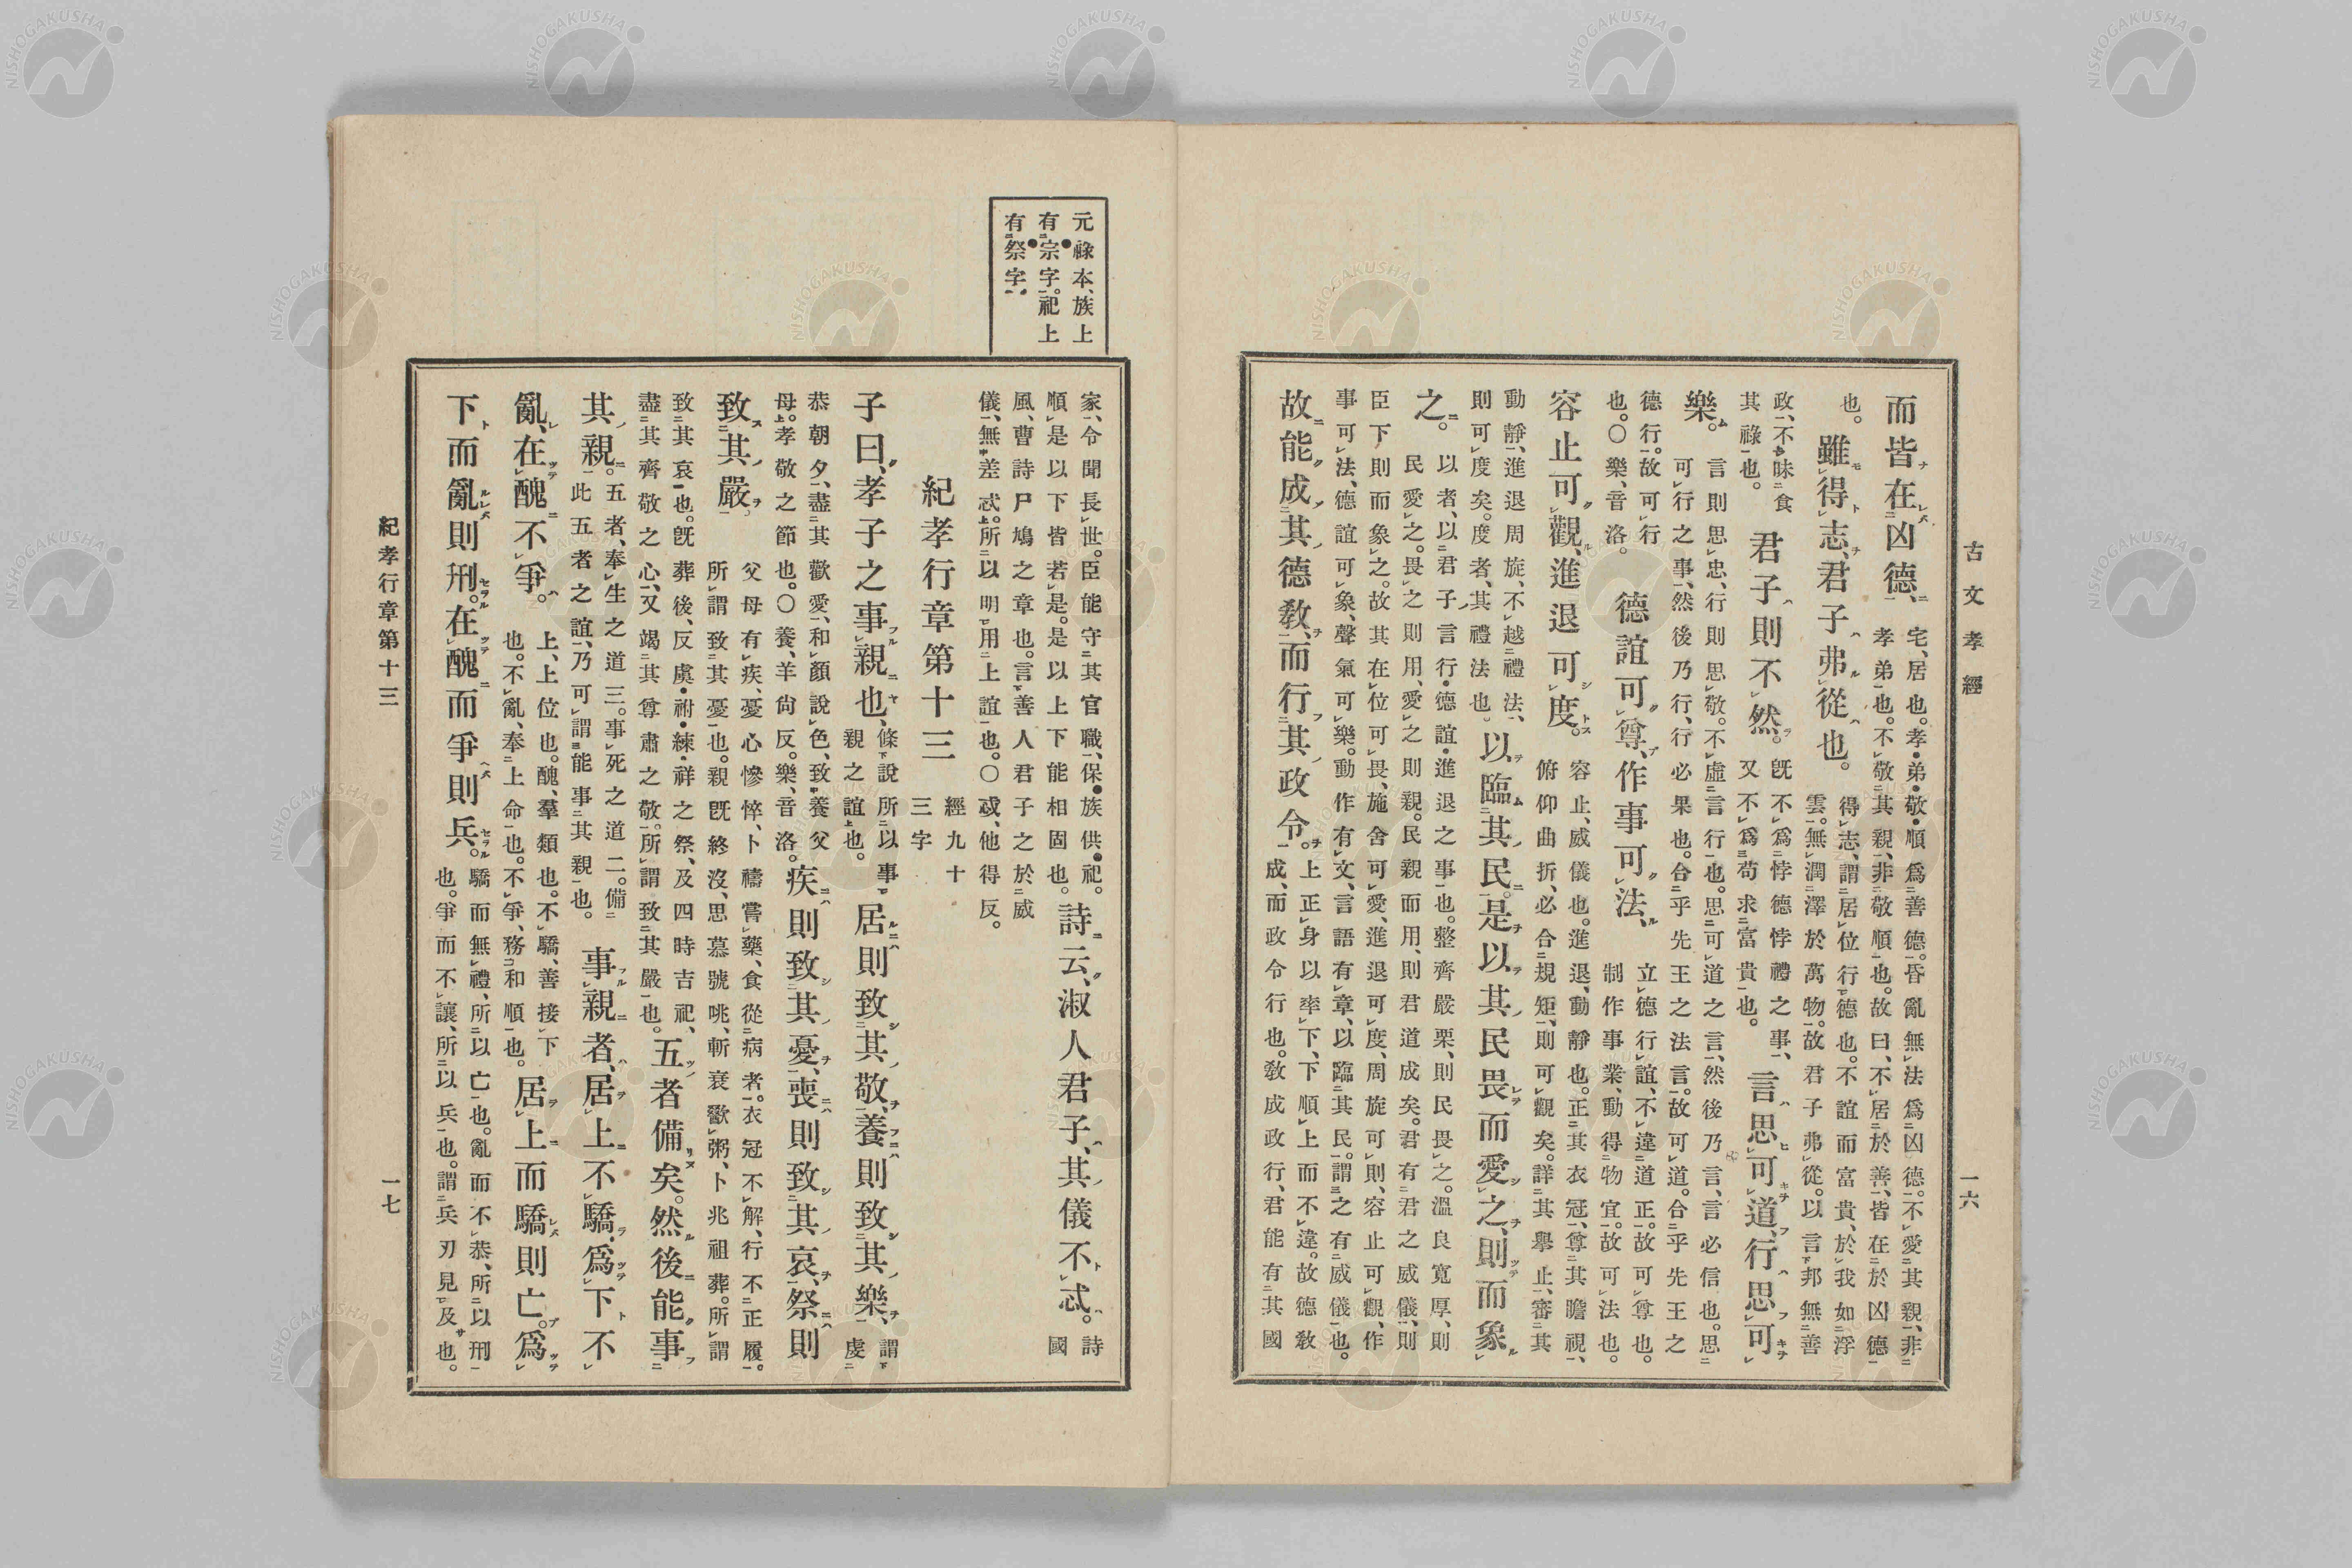 古文孝經
一六
而皆在凶德、
宅、居也。孝・弟・敬・順爲善德。昏亂無法爲凶德。不愛其親、非
孝弟也。不敬其親、非敬順也。故曰、不居於善、皆在於凶德
也。
雖得志、君子弗從也。
得志、謂居位行德也。不誼而富貴、於我如浮
雲。無潤澤於萬物。故君子弗從。以言邦無善
政、不味食
其祿也。
君子則不然。
既不爲悖德悖禮之事、
又不爲苟求富貴也。
言思可道、行思可
樂。
言則思忠、行則思敬。不虛言行也。思可道之言、然後乃言、言必信也。思
可行之事、然後乃行、行必果也。合乎先王之法言。故可道。合乎先王之
德行。故可行
也。〇樂、音洛。
德誼可尊、作事可法、
立德行誼、不違道正。故可尊也。
制作事業、動得物宜。故可法也。
容止可觀、進退可度。
容止、威儀也。進退、動靜也。正其衣冠、尊其瞻視、
俯仰曲折、必合規矩、則可觀矣。詳其擧止、審其
動靜、進退周旋、不越禮法、
則可度矣。度者、其禮法也。
以臨其民。是以其民畏而愛之、則而象
之。
以者、以君子言行・德誼・進退之事也。整齊嚴栗、則民畏之。溫良寬厚、則
民愛之。畏之則用、愛之則親。民親而用、則君道成矣。君有君之威儀、則
臣下則而象之。故其在位可畏、施舍可愛、進退可度、周旋可則、容止可觀、作
事可法、德誼可象、聲氣可樂。動作有文、言語有章、以臨其民。謂之有威儀也。
故能成其德敎、而行其政令。
上正身以率下、下順上而不違。故德敎
成、而政令行也。敎成政行、君能有其國
元祿本、族上
有宗字。祀上
有祭字。
家、令聞長世。臣能守其官職、保族供祀。
順是以下皆若是。是以上下能相固也。
詩云、淑人君子、其儀不忒。
詩國
風、曹詩尸鳩之章也。言善人君子之於威
儀、無差忒。所以明用上誼也。〇忒、他得反。
紀孝行章第十三
經九十
三字
子曰、孝子之事親也、
條說所以事
親之誼也。
居則致其敬、養則致其樂、
謂虔
恭朝夕、盡其歡愛、和顏說色、致養父
母。孝敬之節也。〇養、羊尙反。樂、音洛。
疾則致其憂、喪則致其哀、祭則
致其嚴
父母有疾、憂心慘悴、卜禱嘗藥、食從病者。衣冠不解、行不正履。
所謂致其憂也。親旣終沒、思慕號咷、斬衰歠粥、卜兆祖葬。所謂
致其哀也。旣葬後、反虞・祔・練・祥之祭、及四時吉祀、
盡其齊敬之心、又竭其尊肅之敬。所謂致其嚴也。
五者備矣。然後能事
其親。
五者、奉生之道三。事死之道二。備
此五者之誼、乃可謂能事其親也。
事親者、居上不驕、爲下不
亂、在醜不爭。
上、上位也。醜、羣類也。不驕、善接下
也。不亂、奉上命也。不爭、務和順也。
居上而驕則亡。爲
下而亂則刑。在醜而爭則兵。
驕而無禮、所以亡也。亂而不恭、所以刑
也。爭而不讓、所以兵也。謂兵刃見及也。
紀孝行章第十三
一七